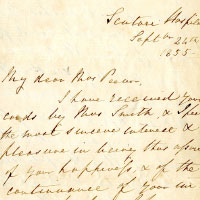 Scutari Hospital
Sept br 24th
1855
My dear Mrs
I have received your
cards by Mrs Smith &
the most sincere interest &
pleasure in being thus
of your happiness, & of the
continuance of your